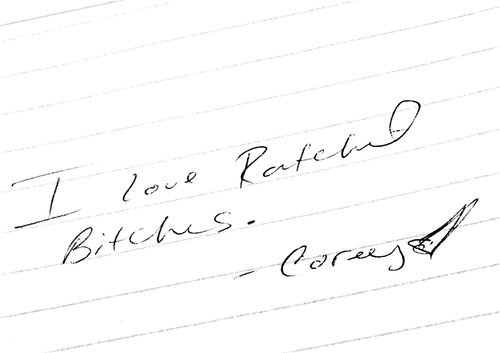 I love Ratchet
Bitches.
- Corey